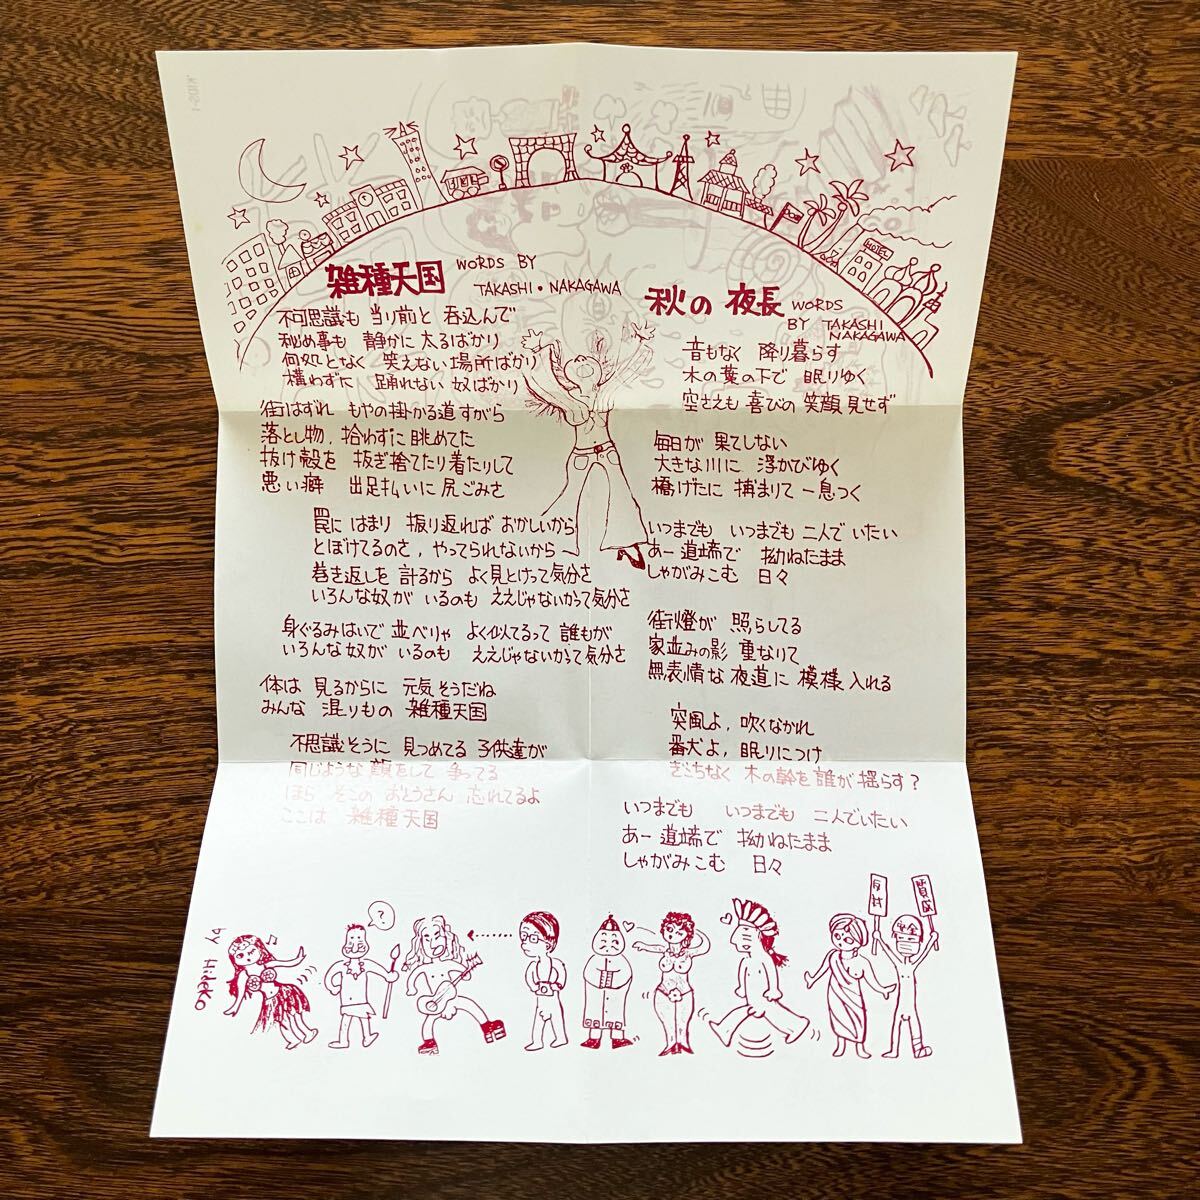 KIDS-1
HOTEL
雑種天国 WORDS BY
TAKASHI・NAKAGAWA
不可思議も 当り前と 呑込んで
秘め事も 静かに 太るばかり
何処となく 笑えない 場所ばかり
構わずに 踊れない 奴ばかり
街はずれ もやの掛かる道すがら
落とし物, 拾わずに眺めてた
抜け殻を 抜ぎ捨てたり着たりして
悪い癖 出足払いに 尻ごみさ
罠に はまり 振り返れば おかしいから
とぼけてるのさ, やってられないから
巻き返しを 計るから よく見とけって気分さ
いろんな奴が いるのも ええじゃないかって気分さ
身ぐるみはいで 並べりゃ よく似てるって 誰もが
いろんな奴が いるのも ええじゃないかって気分さ
体は 見るからに 元気そうだね
みんな 混りもの 雑種天国
不思議そうに 見つめてる 子供達が
同じような 顔をして 争ってる
ほら そこの おとうさん 忘れてるよ
ここは 雑種天国
秋の夜長 WORDS
BY TAKASHI
NAKAGAWA
音もなく 降り暮らす
木の葉の下で 眠りゆく
空さえも 喜びの 笑顔見せず
毎日が 果てしない
大きな川に 浮かびゆく
橋げたに 捕まりて 一息つく
いつまでも いつまでも 二人で いたい
あー 道端で 拗ねたまま
しゃがみこむ 日々
街燈が 照らしてる
家並みの影 重なりて
無表情な 夜道に 模様 入れる
突風よ, 吹くなかれ
番犬よ, 眠りにつけ
ぎこちなく 木の幹を 誰が 揺らす?
いつまでも いつまでも 二人でいたい
あー 道端で 拗ねたまま
しゃがみこむ 日々
by Hideko
?
反対
賛成
安全